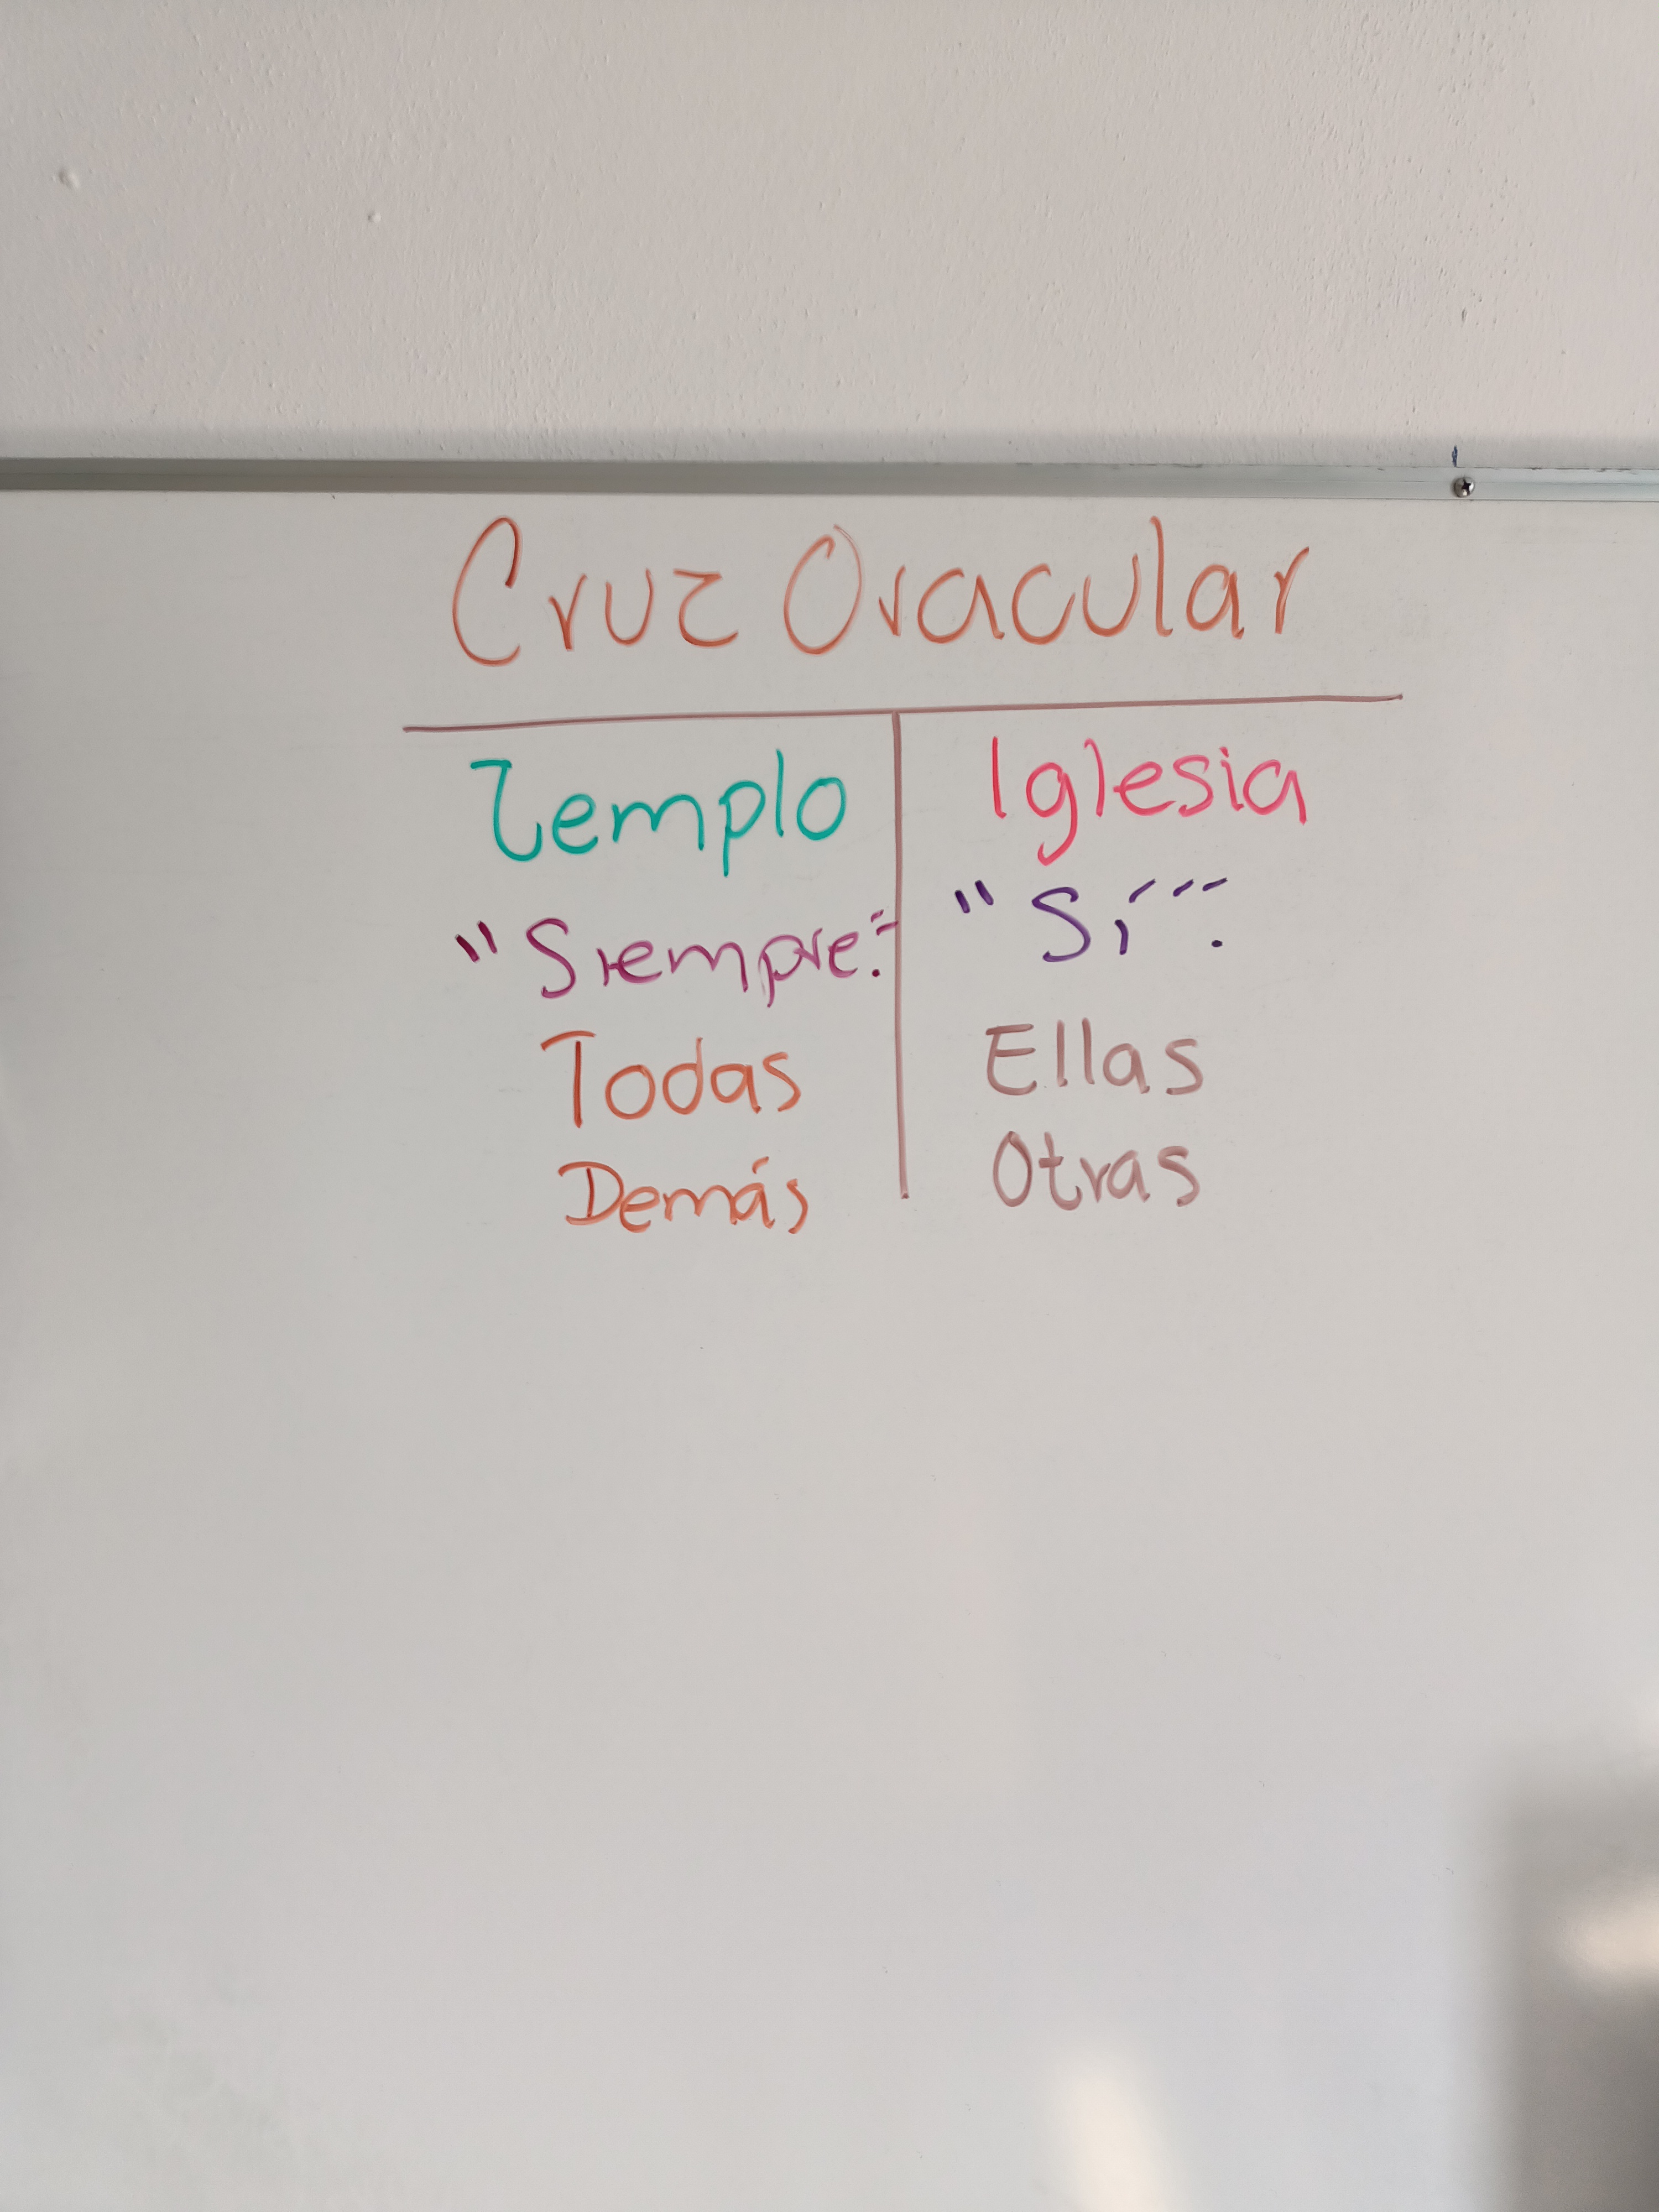 Cruz Oracular
Templo
"Siempre".
Todas
Demás
Iglesia
"Sí".
Ellas
Otras